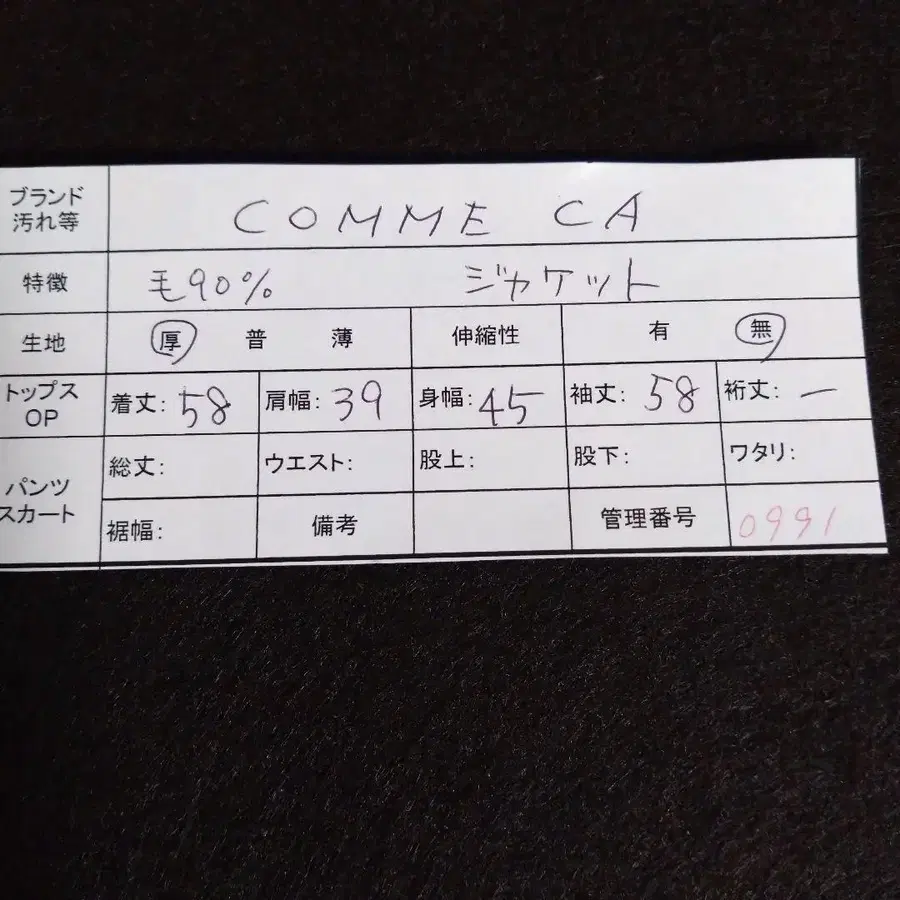 ブランド
汚れ等 COMME CA
特徴 毛90% ジャケット
生地 厚 普 薄 伸縮性 有 無
トップス
OP 着丈: 58 肩幅: 39 身幅: 45 袖丈: 58 裄丈: ー
パンツ
スカート 総丈: ウエスト: 股上: 股下: ワタリ:
裾幅: 備考 管理番号 0991